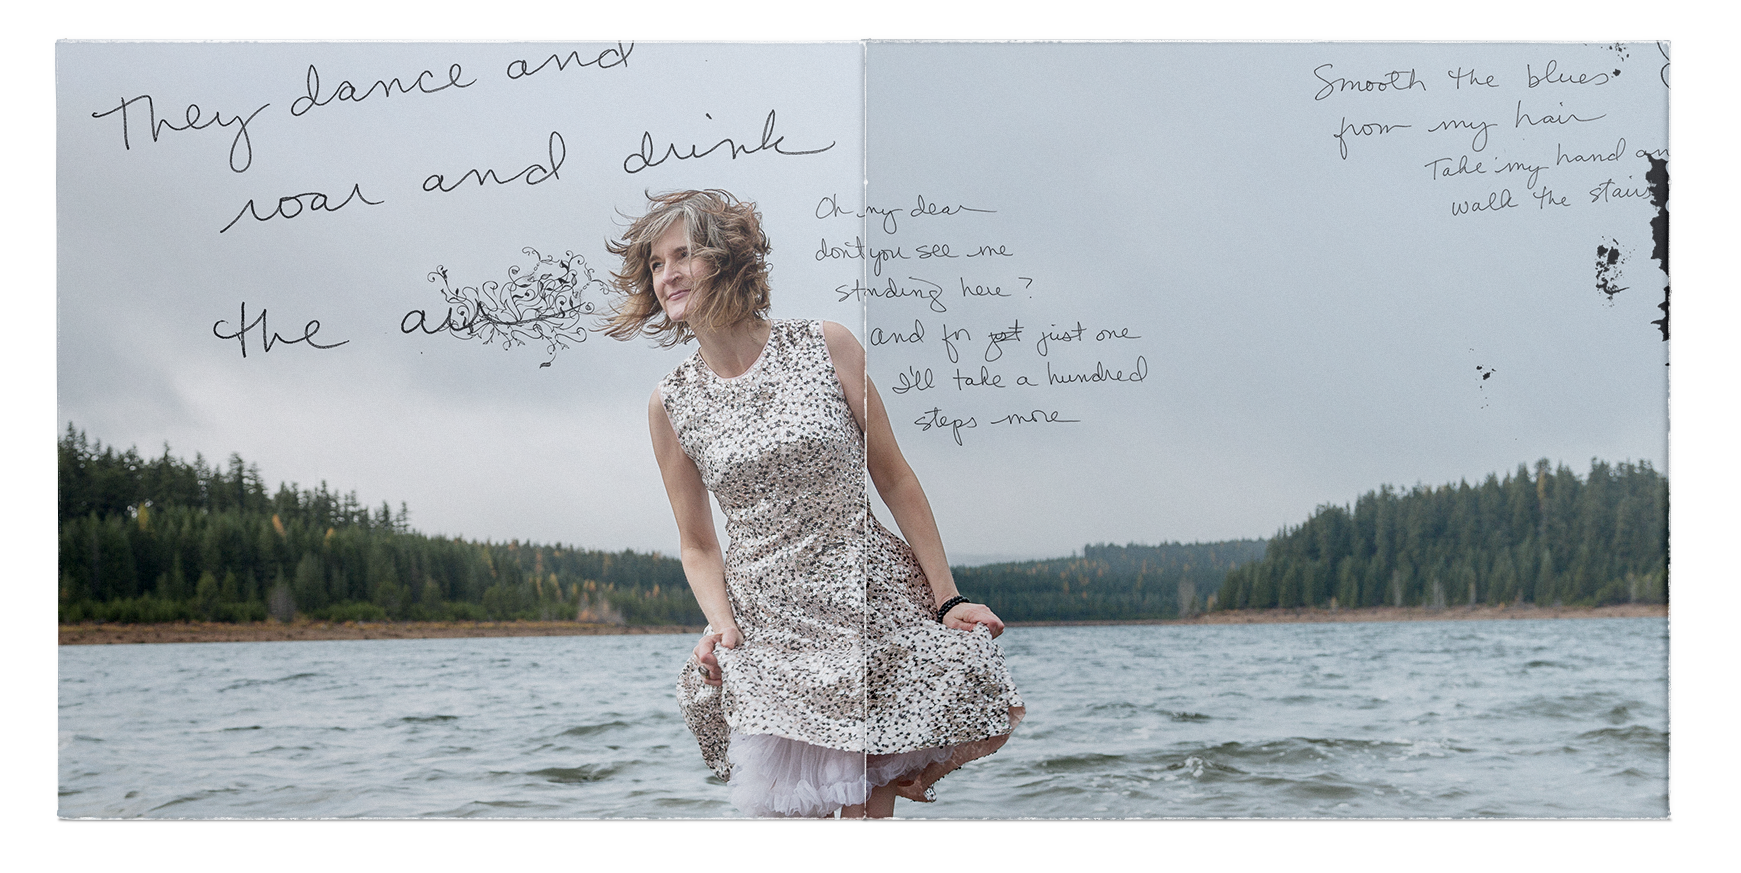 They dance and
roar and drink
the
Oh my dear
don't you see me
standing here ?
and for just one
I'll take a hundred
steps more
Smooth the blues
from my hair
Take my hand an
walk the stairs